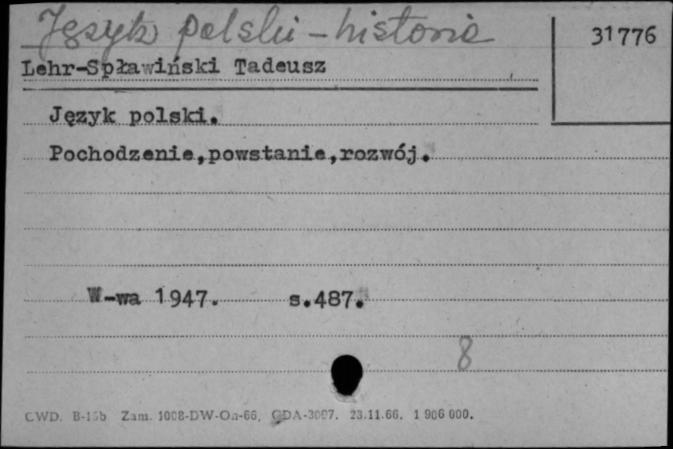 Język polski - historia
31776
Lehr-Spławiński Tadeusz
Język polski.
Pochodzenie,powstanie,rozwój.
W-wa 1947. s.487.
8
CWD. B-15b Zam. 1008-DW-On-66. GDA-3097. 23.11.66. 1 906 000.